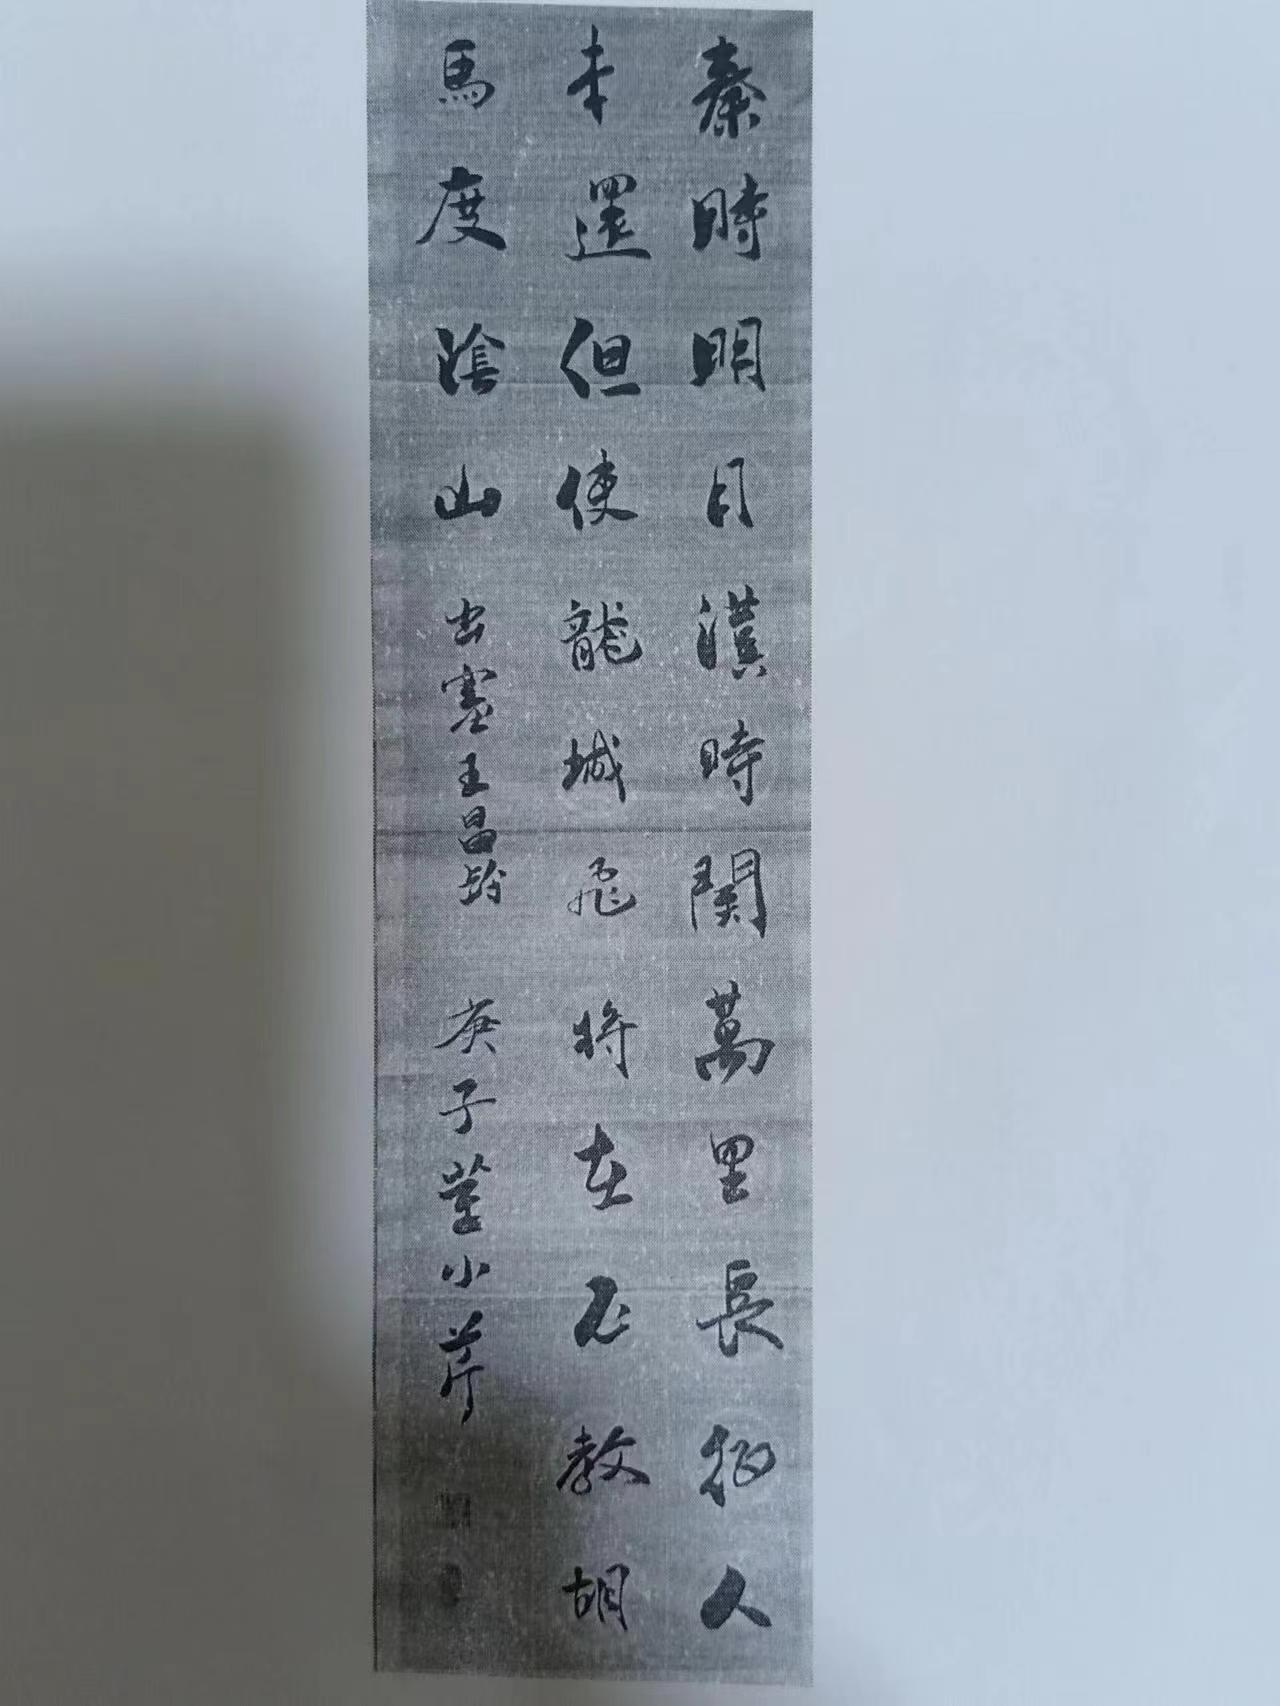 秦時明月漢時関萬里長征人
未還但使龍城飛将在不教胡
馬度陰山 出塞王昌齡 庚子董小芹